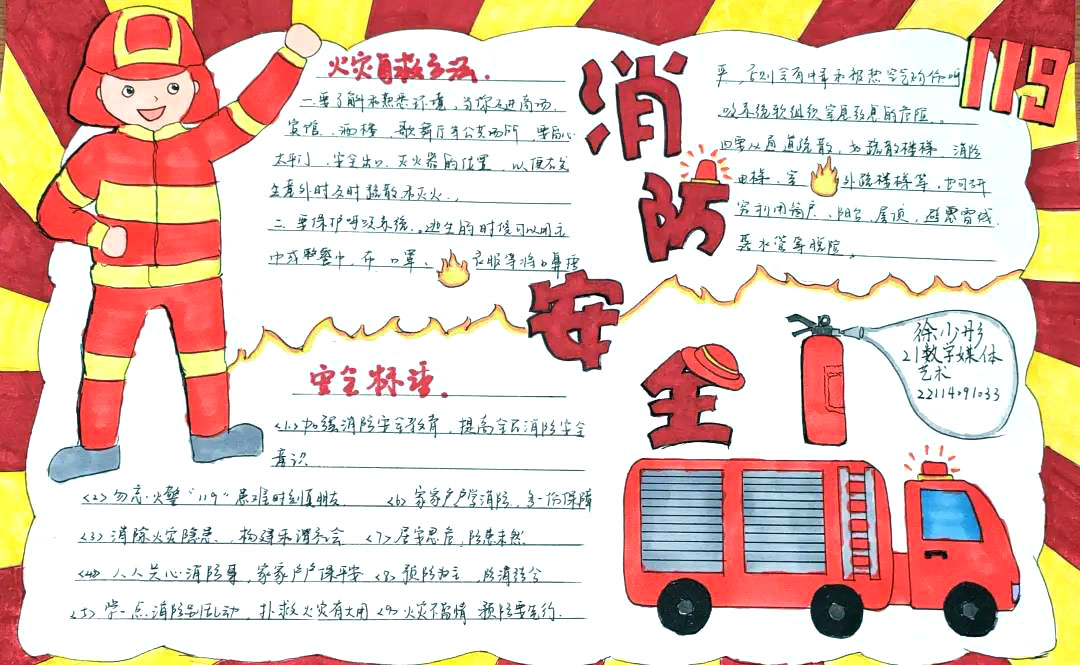 消防安全
119
火灾自救方法.
一.要了解和熟悉环境,当你走进商场、
宾馆、酒楼、歌舞厅等公共场所,要留心
太平门、安全出口、灭火器的位置,以便在发
生意外时及时疏散和灭火.
二.要保护呼吸系统.逃生的时候可以用
巾或 巾,在口罩、衣服等将口鼻捂
严,否则会有中毒和被热空气灼伤呼
吸系统软组织窒息致死的危险。
四要从通道疏散,如疏散楼梯、消防
电梯、室外疏楼梯等,也可研
究利用窗户、阳台、屋顶、避雷线、
落水管等脱险。
安全标语.
<1>加强消防安全教育,提高全民消防安全
意识
<2>勿忘火警“119”患难时刻真朋友
<3>消除火灾隐患,构建和谐社会
<4>人人关心消防事,家家户户保平安
<5>学一点消防 活动,扑救火灾有大用
<6>家家户户学消防,多一份保障
<7>居安思危,防患未然
<8>预防为主,防消结合
<9>火灾不留情 预防要先行.
徐少彤
21数字媒体
艺术
22114091033